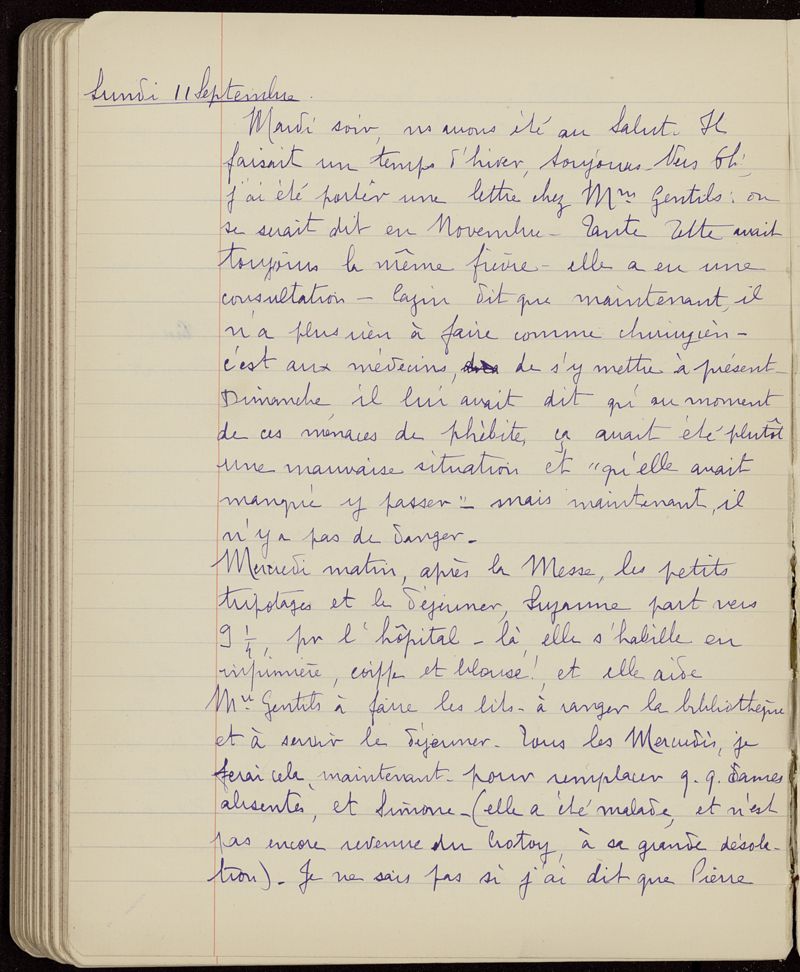 Lundi 11 Septembre.
Mardi soir, ns avons été au Salut. Il
faisait un temps d'hiver, toujours. Vers 6h,
j'ai été porter une lettre chez Mme Gentils : on
se serait dit en Novembre - Tante Zette avait
toujours la même fièvre - elle a eu une
consultation - Cazin dit que maintenant, il
n'a plus rien à faire comme chirurgien -
c'est aux médecins, de s'y mettre à présent -
Dimanche il lui avait dit qu'au moment
de ces menaces de phébite, ça avait été plutôt
une mauvaise situation et "qu'elle avait
manqué y passer" - mais maintenant, il
n'y a pas de danger -
Mercredi matin, après la Messe, les petits
tripotages et le déjeuner, Suzanne part vers
9 1/4, pr l'hôpital - là, elle s'habille en
infirmière, coiffe et blouse !, et elle aide
Mme Gentils à faire les lits - à ranger la bibliothèque
et à servir le déjeuner - Tous les Mercredis, je
ferai cela, maintenant - pour remplacer q.q. dames
absentes, et Simone - (elle a été malade, et n'est
pas encore revenue du Crotoy, à sa grande désola-
tion) - Je ne sais pas si j'ai dit que Pierre